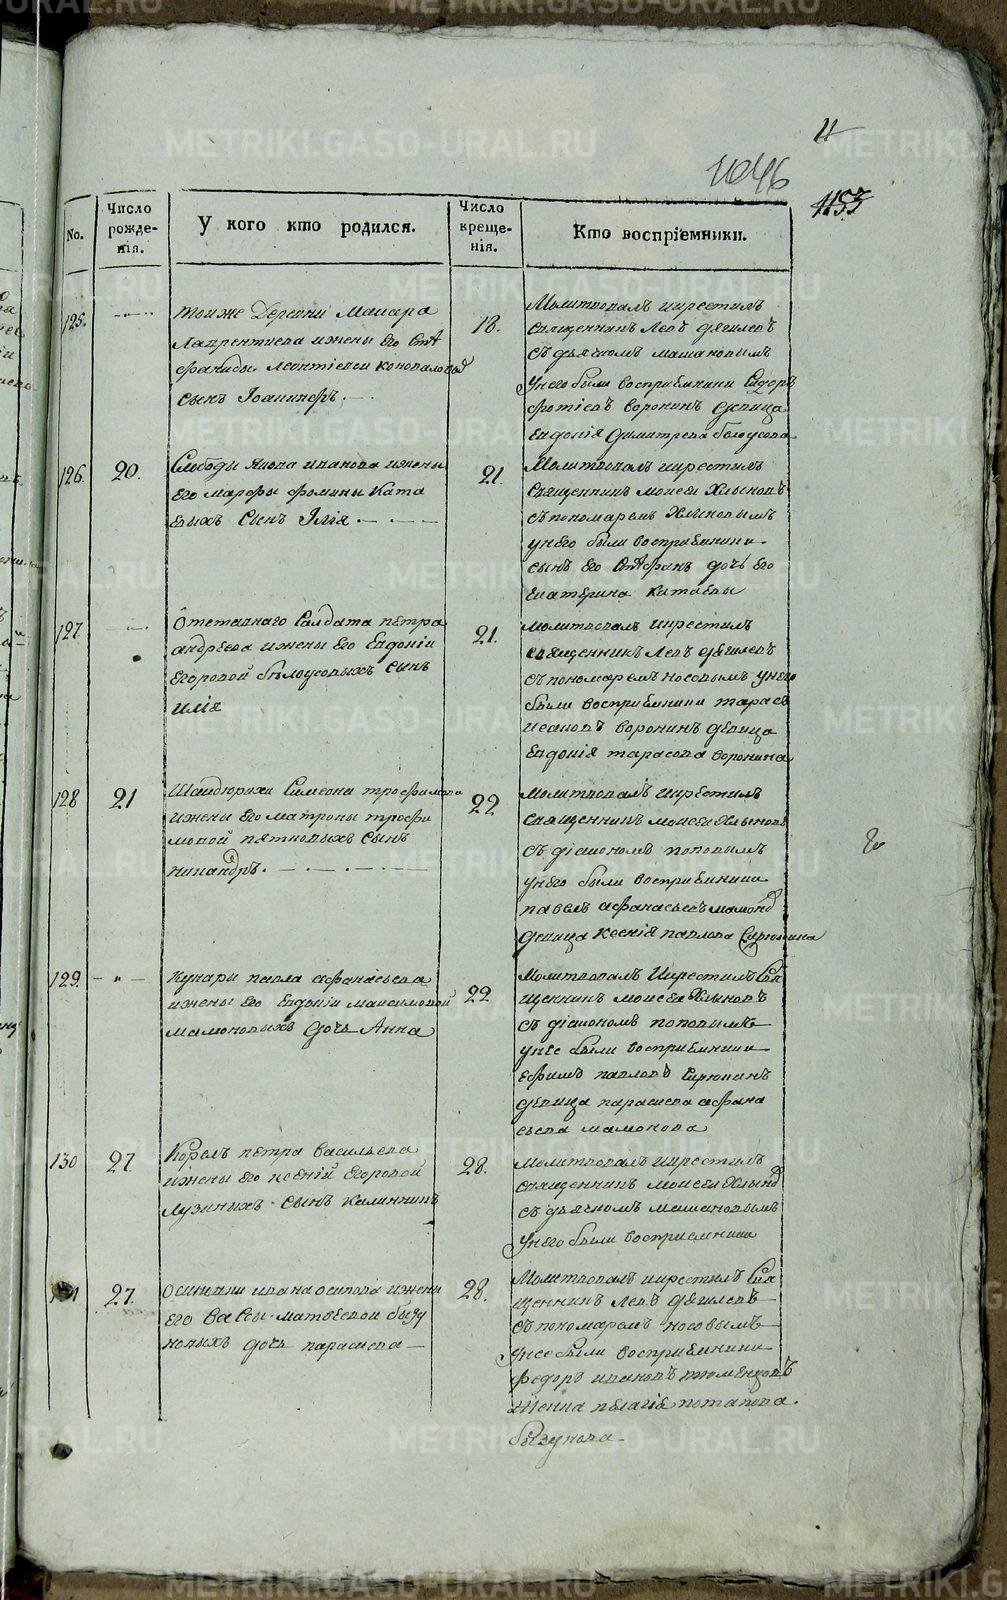 11
1046
1153
No.
Число рожде-нія.
У кого кто родился.
Число креще-нія.
Кто воспріемники.
125.
тояже Деревни Макара
Лаврентиева ижены Его Стѣ
фаниды Леонтіевой коноваловы
сынъ Іоанникъ.
18.
Молитвовалъ икрестилъ
священникъ Левъ дягилевъ
съ дьячкомъ машановымъ
унего были восприемники Сидоръ
фотіевъ воронинъ девица
евдокія Димитрева белоусова
126.
20.
Слободы Якова иванова ижены
его марфы фомины Ката
евыхъ сынъ Ілія
21.
Молитвовалъ икрестилъ
священникъ моисей Хлыновъ
съ пономаремъ Хлыновымъ
унего были восприемники
сынъ его Стефанъ дочь его
екатерина катаевы
127
отставнаго Салдата петра
андреева ижены его Евдокіи
Егоровой белоусовыхъ сынъ
илія
21.
молитвовалъ икрестилъ
священникъ Левъ дягилевъ
съ пономаремъ носовымъ унего
были восприемники тарасъ
исаковъ воронинъ девица
евдокія тарасова воронина
128
21
Шандюрихи Симеона трофимова
ижены его матроны трофи
мовой пятковыхъ сынъ
никандръ.
22
молитвовалъ икрестилъ
священникъ моисей Хлыновъ
съ діакономъ поповымъ
унего были восприемники
павелъ афанасьевъ мамоно
девица ксенія павлова Сирюкина
129.
Кунары павла афанасьева
ижены его евдокіи максимовой
мамоновыхъ дочь Анна
22
Молитвовалъ икрестилъ Свя
щенникъ моисей Хлыновъ
съ діакономъ поповымъ
унее были восприемники
ефимъ павловъ Сирюкинъ
девица параскева афана
сьева мамонова
130
27
Корелъ петра васильева
ижены его ксеніи егоровой
лузиныхъ сынъ каллиникъ
28.
молитвовалъ икрестилъ
священникъ моисей Хлыно
съ дьячкомъ машановымъ
унего были восприемники
27.
осинцовы ивана осипова ижены
его вассы матвеевой бызу
новыхъ дочь параскева
28.
Молитвовалъ икрестилъ Свя
щенникъ Левъ дягилевъ
съ пономаремъ носовымъ
унее были восприемники
федоръ ивановъ тюменцовъ
женка пелагія потапова
бызунова